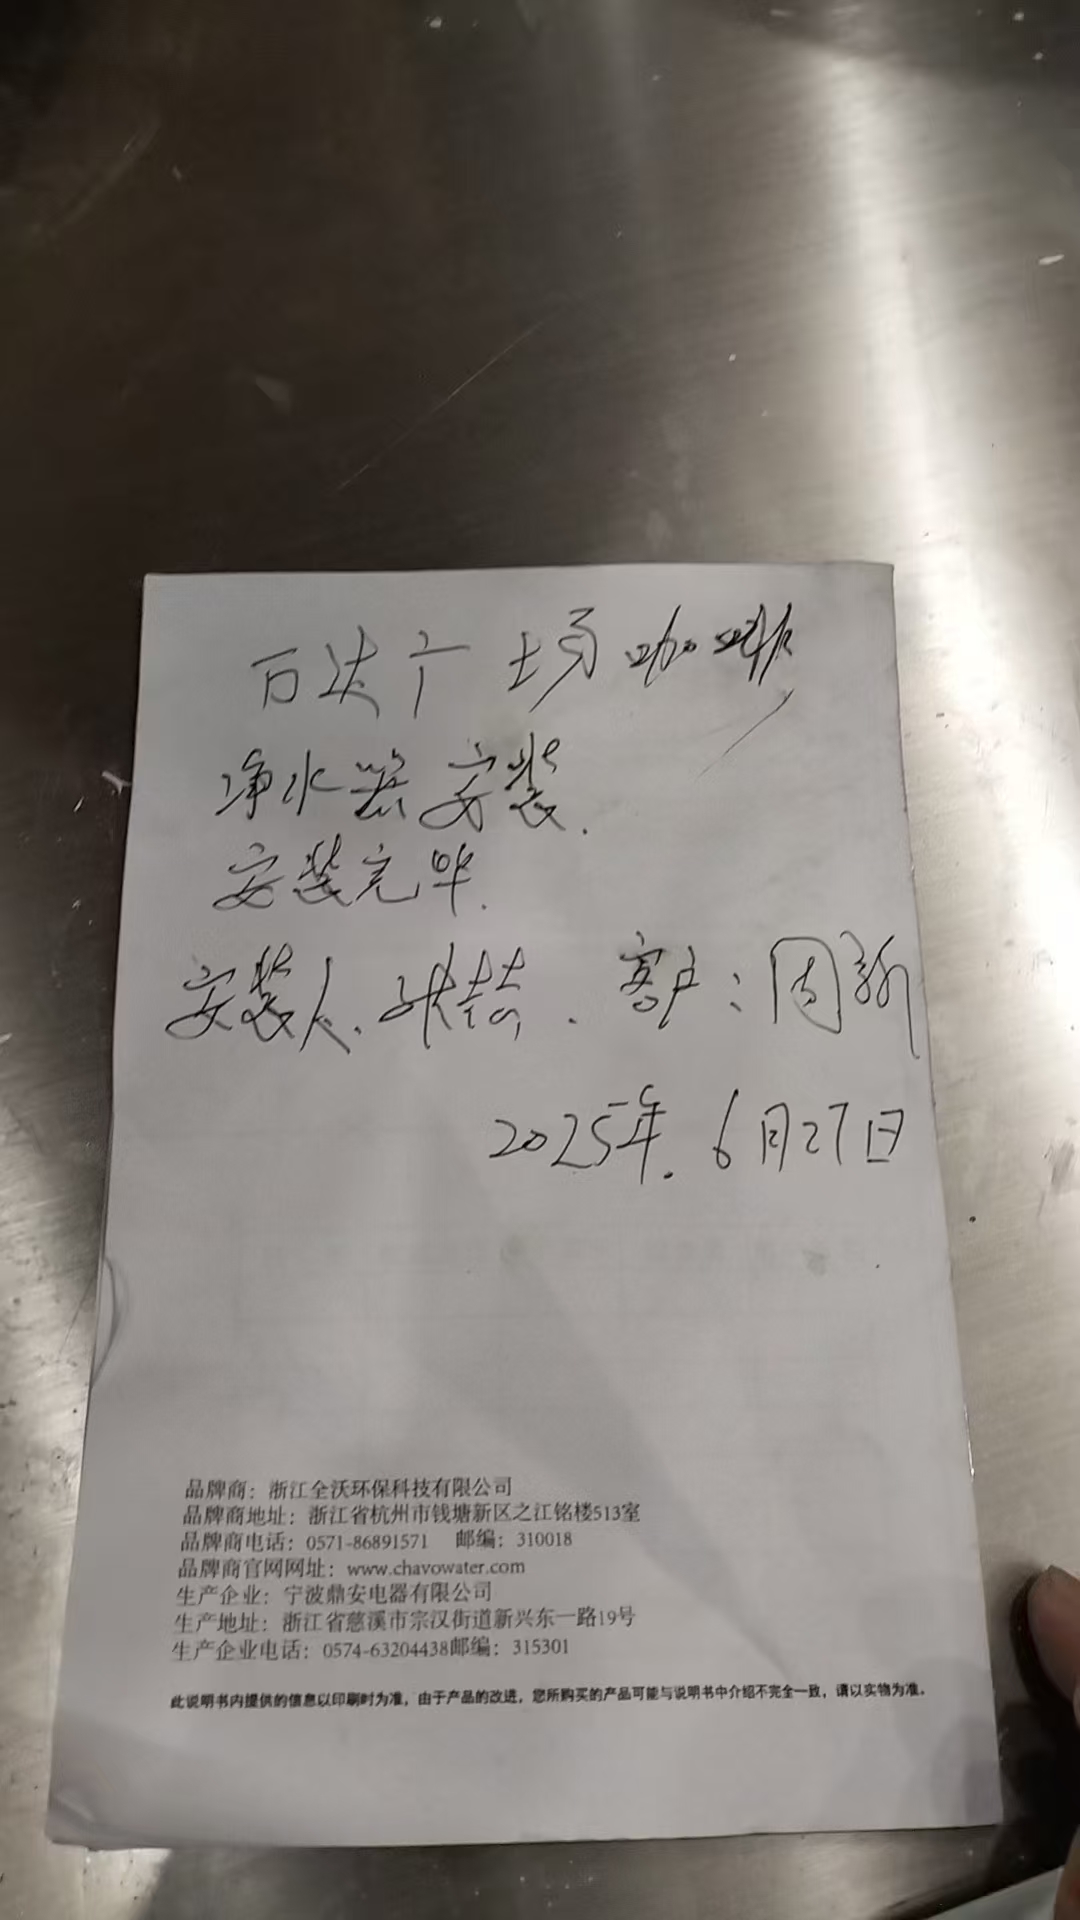 万达广场咖啡
净水器安装.
安装完毕.
安装人、张喆. 客户:周新
2025年.6月27日
品牌商：浙江全沃环保科技有限公司
品牌商地址：浙江省杭州市钱塘新区之江铭楼513室
品牌商电话：0571-86891571 邮编：310018
品牌商官网网址：www.chavowater.com
生产企业：宁波鼎安电器有限公司
生产地址：浙江省慈溪市宗汉街道新兴东一路19号
生产企业电话：0574-63204438邮编：315301
此说明书内提供的信息以印刷时为准，由于产品的改进，您所购买的产品可能与说明书中介绍不完全一致，请以实物为准。